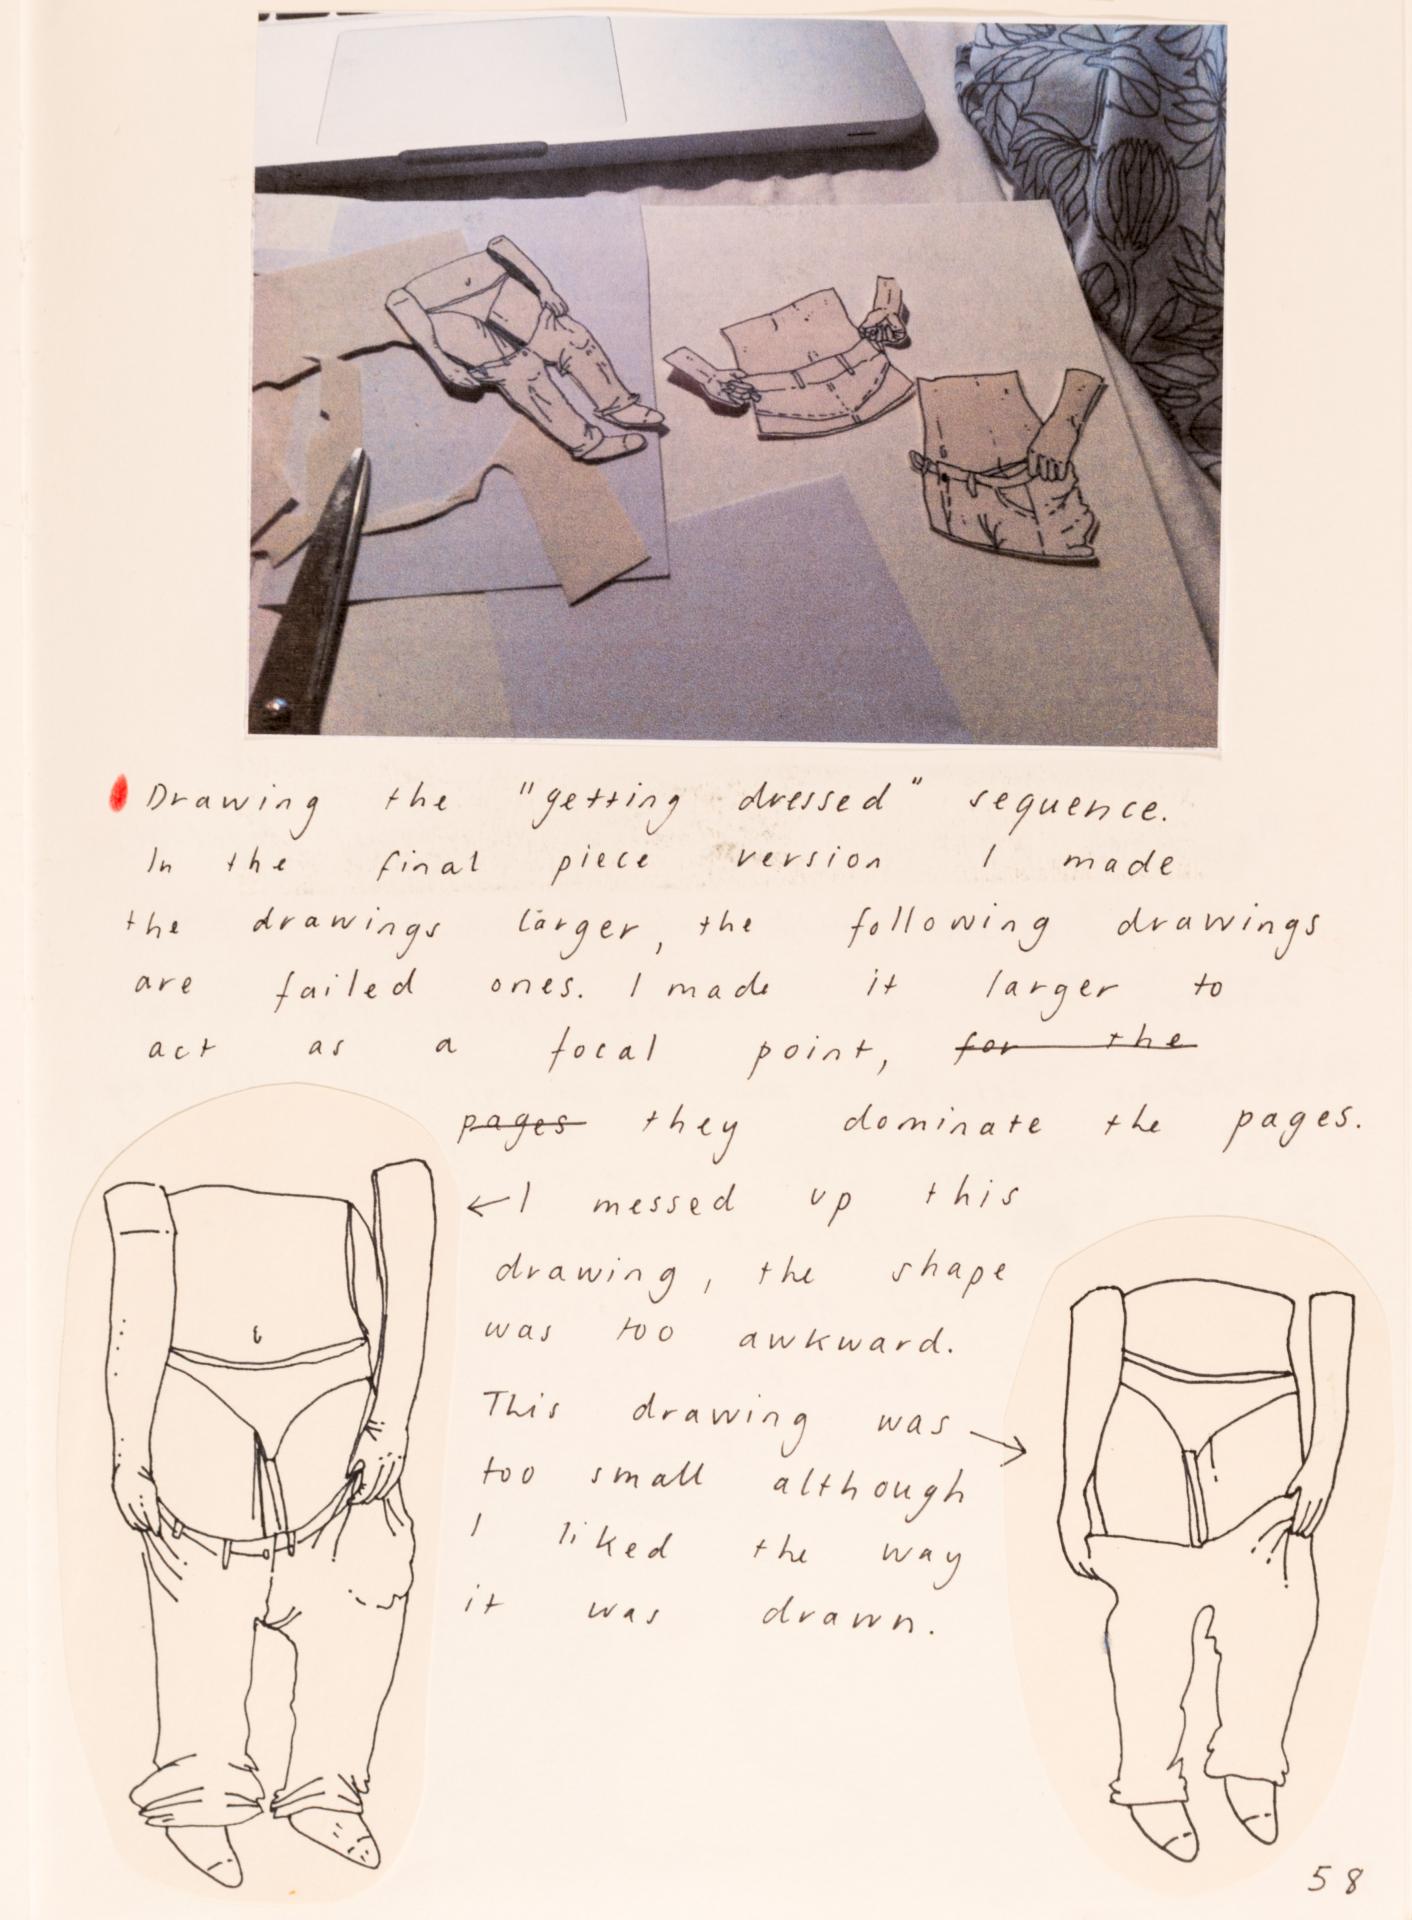 Drawing the "getting dressed" sequence.
In the final piece version I made
the drawings larger, the following drawings
are failed ones. I made it larger to
act as a focal point, for the
pages they dominate the pages.
←I messed up this
drawing, the shape
was too awkward.
This drawing was →
too small although
I liked the way
it was drawn.
58